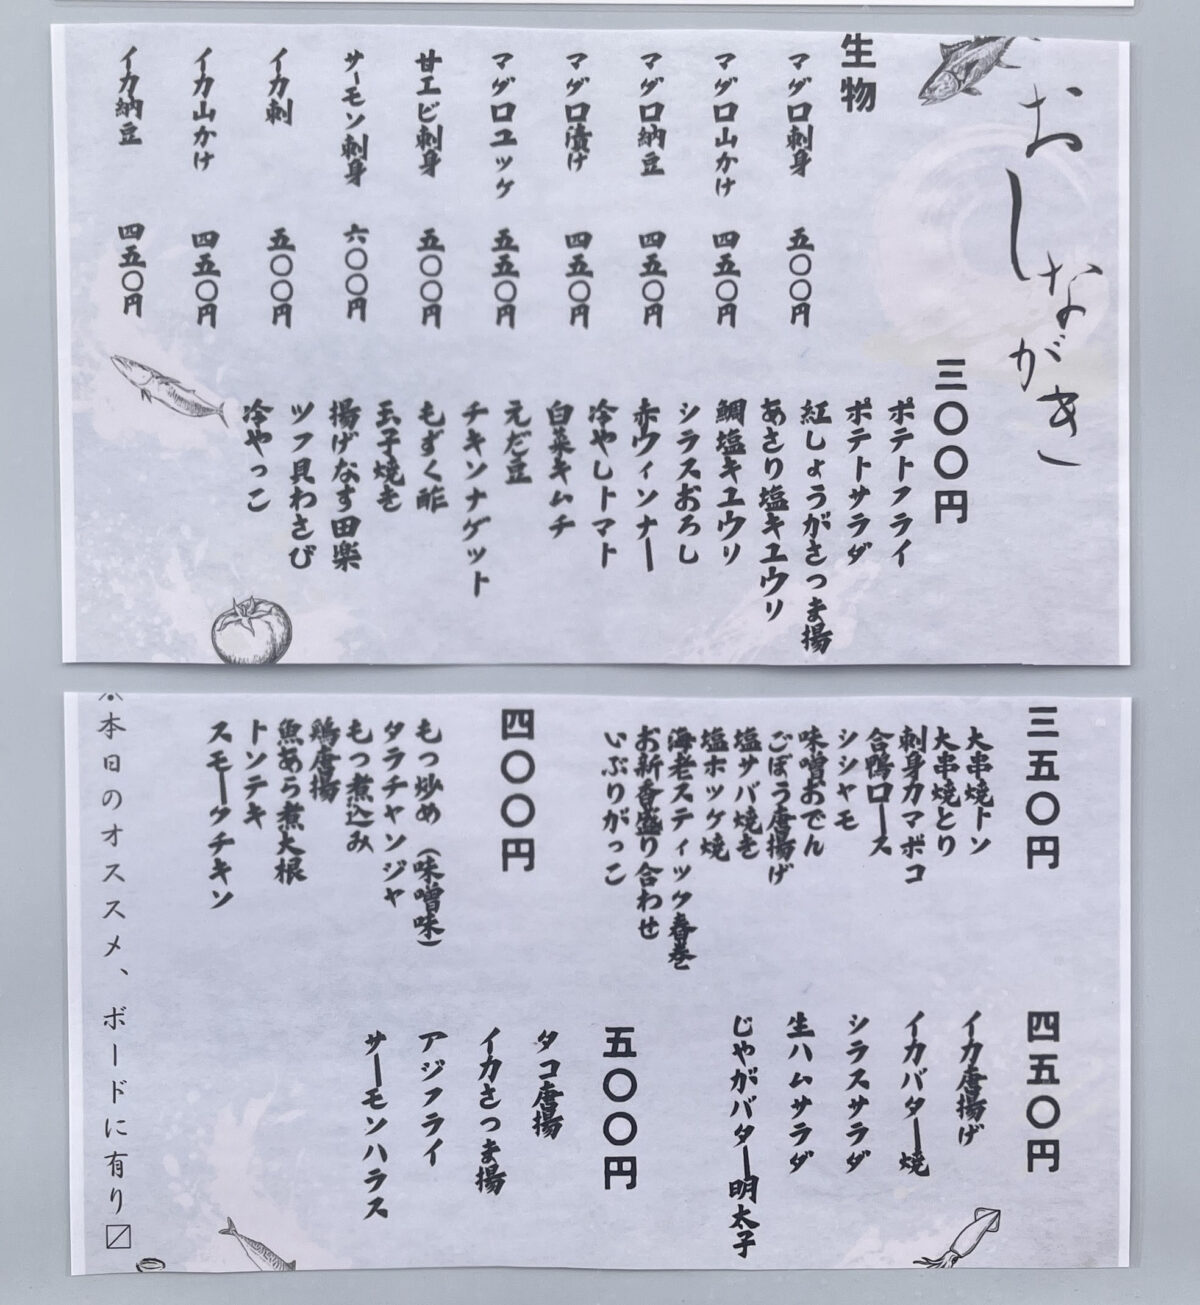 おしながき
生物
マグロ刺身 五〇〇円
マグロ山かけ 四五〇円
マグロ納豆 四五〇円
マグロ漬け 四五〇円
マグロユッケ 五五〇円
甘エビ刺身 五〇〇円
サーモン刺身 六〇〇円
イカ刺 五〇〇円
イカ山かけ 四五〇円
イカ納豆 四五〇円
三〇〇円
ポテトフライ
ポテトサラダ
紅しょうがさつま揚
あさり塩キュウリ
鯛塩キユウリ
シラスおろし
赤ウィンナー
冷やしトマト
白菜キムチ
えだ豆
チキンナゲット
もずく酢
玉子焼き
揚げなす田楽
ツブ貝わさび
冷やっこ
三五〇円
大串焼トン
大串焼とり
刺身カマボコ
合鴨ロース
シシャモ
味噌おでん
ごぼう唐揚げ
塩サバ焼き
塩ホッケ焼
海老スティック春巻
お新香盛り合わせ
いぶりがっこ
四〇〇円
もつ炒め（味噌味）
タラチャンジャ
もつ煮込み
鶏唐揚
魚あら煮大根
トンテキ
スモークチキン
四五〇円
イカ唐揚げ
イカバター焼
シラスサラダ
生ハムサラダ
じゃがバター明太子
五〇〇円
タコ唐揚
イカさつま揚
アジフライ
サーモンハラス
※本日のオススメ、ボードに有り〼